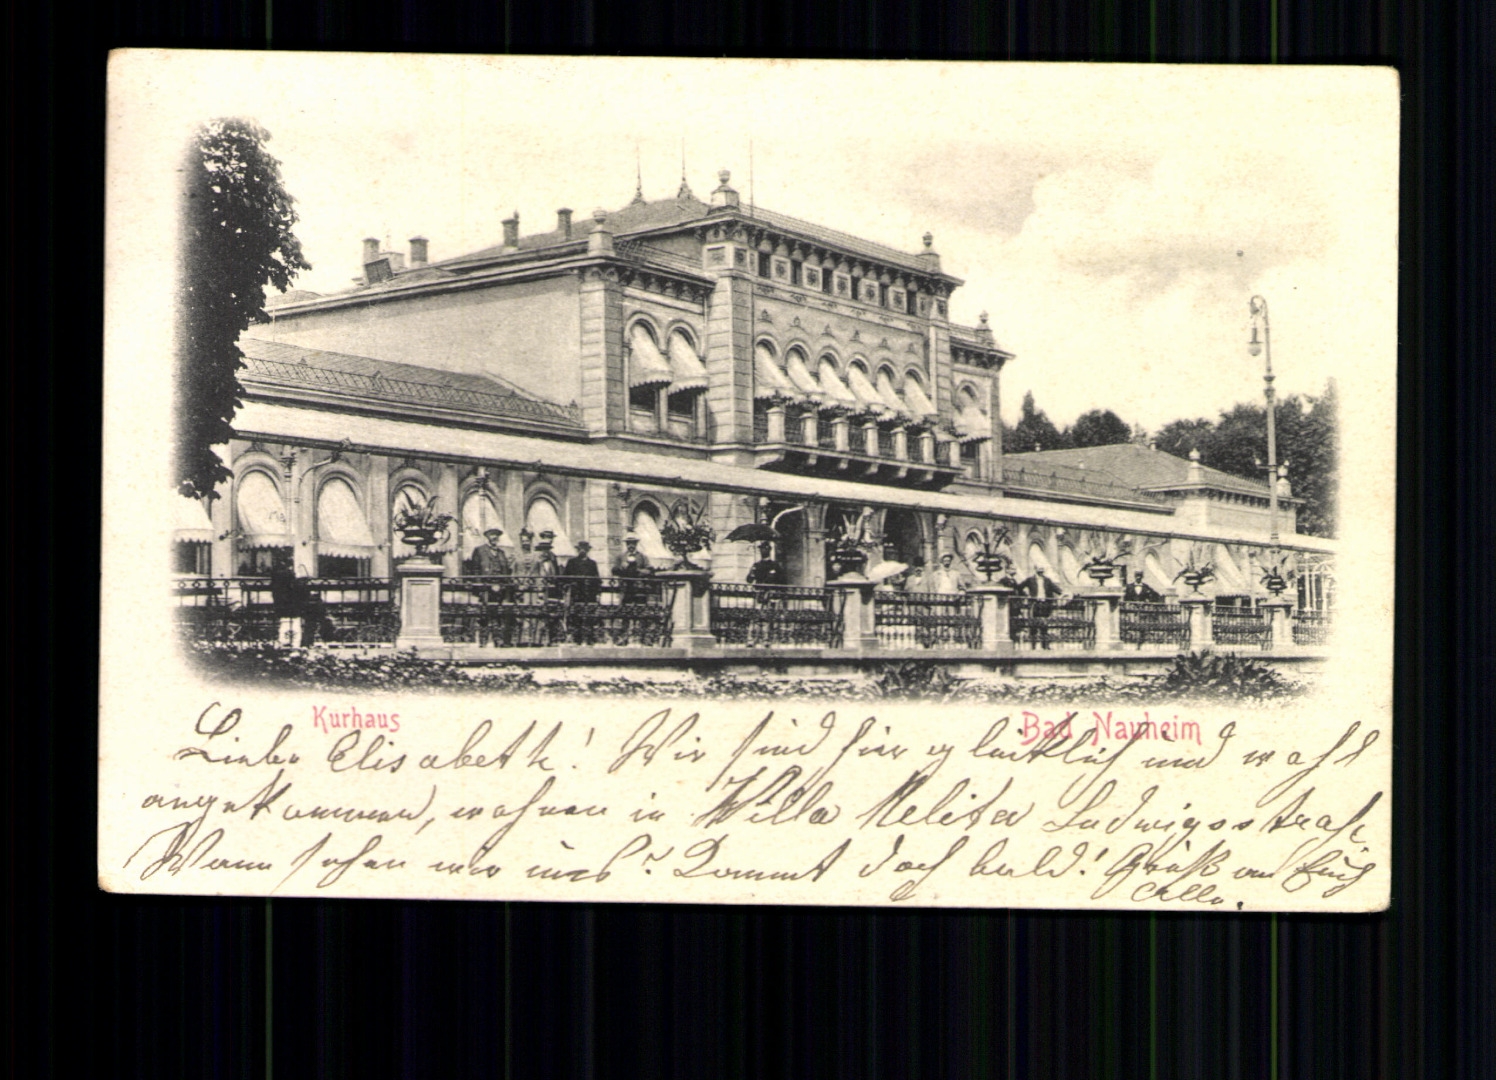 Kurhaus
Bad Nauheim
Liebe Elisabeth! Wir sind hier glücklich und wohl
angekommen, wohnen in Villa Melitta Ludwigsstraße.
Wann sehen wir uns? Kommt doch bald! Gruß an Euch
Alle.